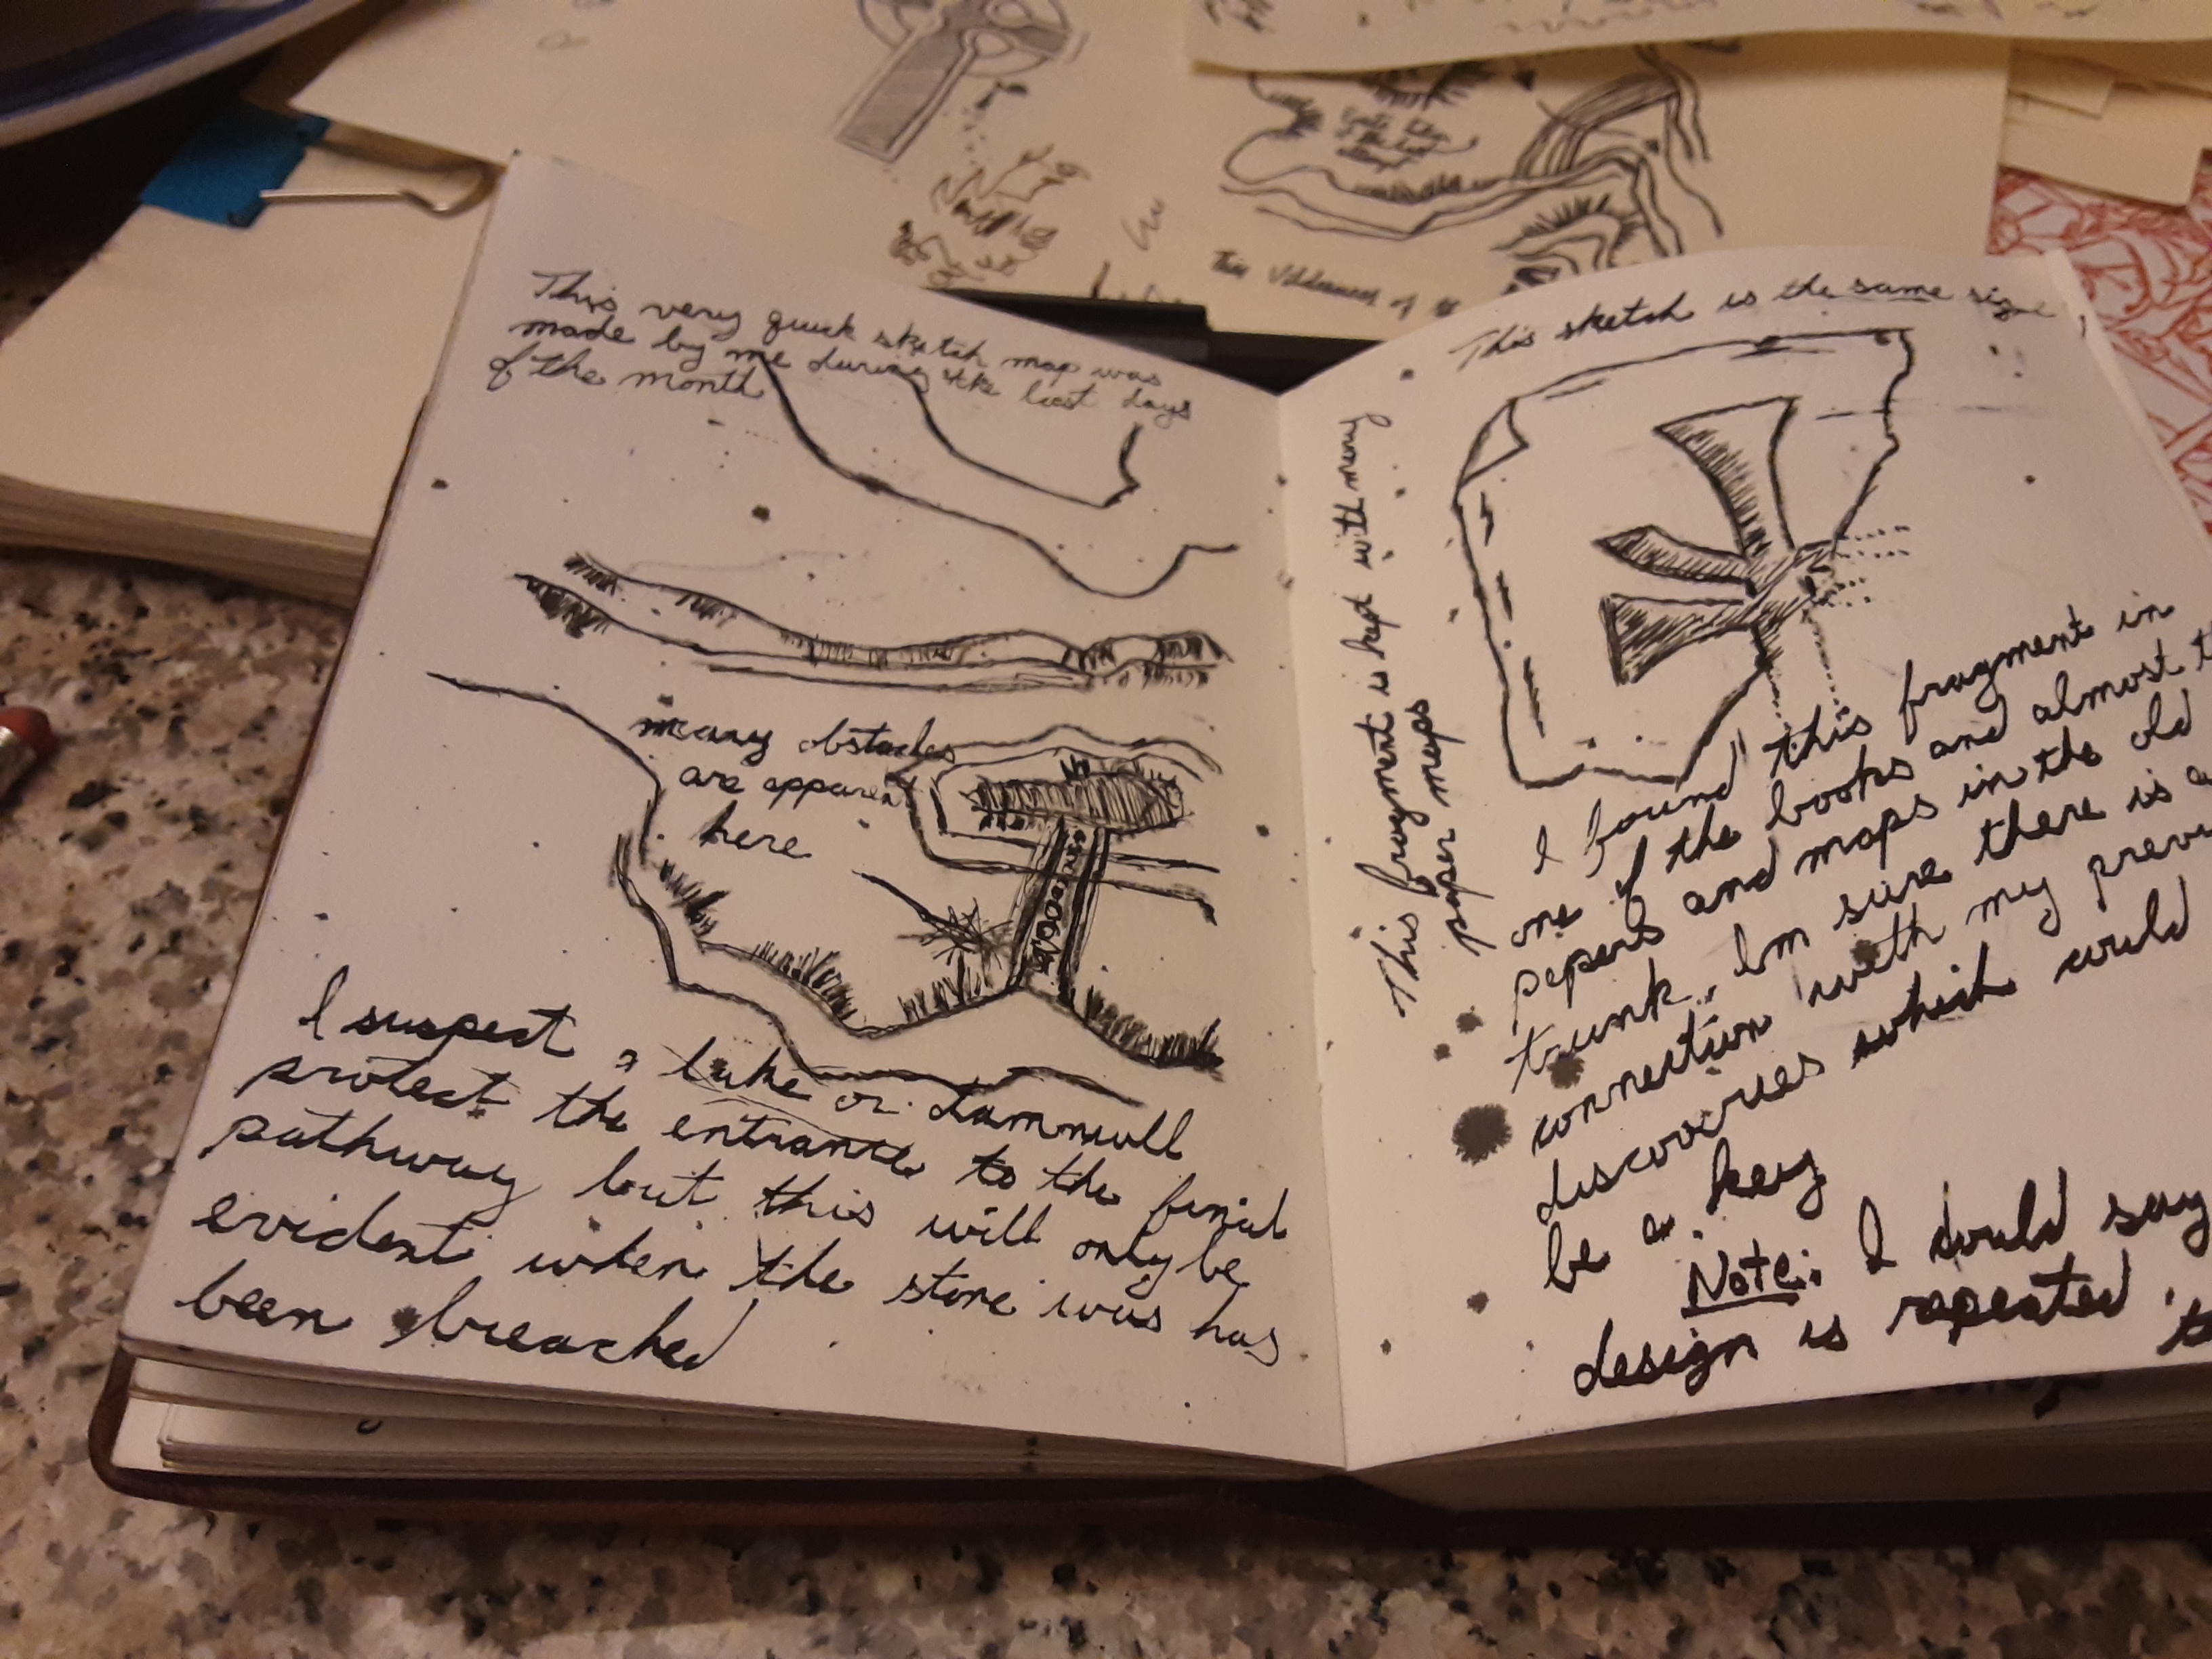 This very quick sketch map was
made by me during the last days
of the month
many obstacles
are apparent
here
I suspect a lake or dammwll
protect the entrance to the final
pathway but this will only be
evident when the stone was has
been breached
This of
This sketch is the same size
This fragment is kept with many
paper maps
I found this fragment in
one of the books and almost
papers and maps in the old
trunk. Im sure there is
connection with my
discoveries which would
be a key
Note: I would say
design is repeated